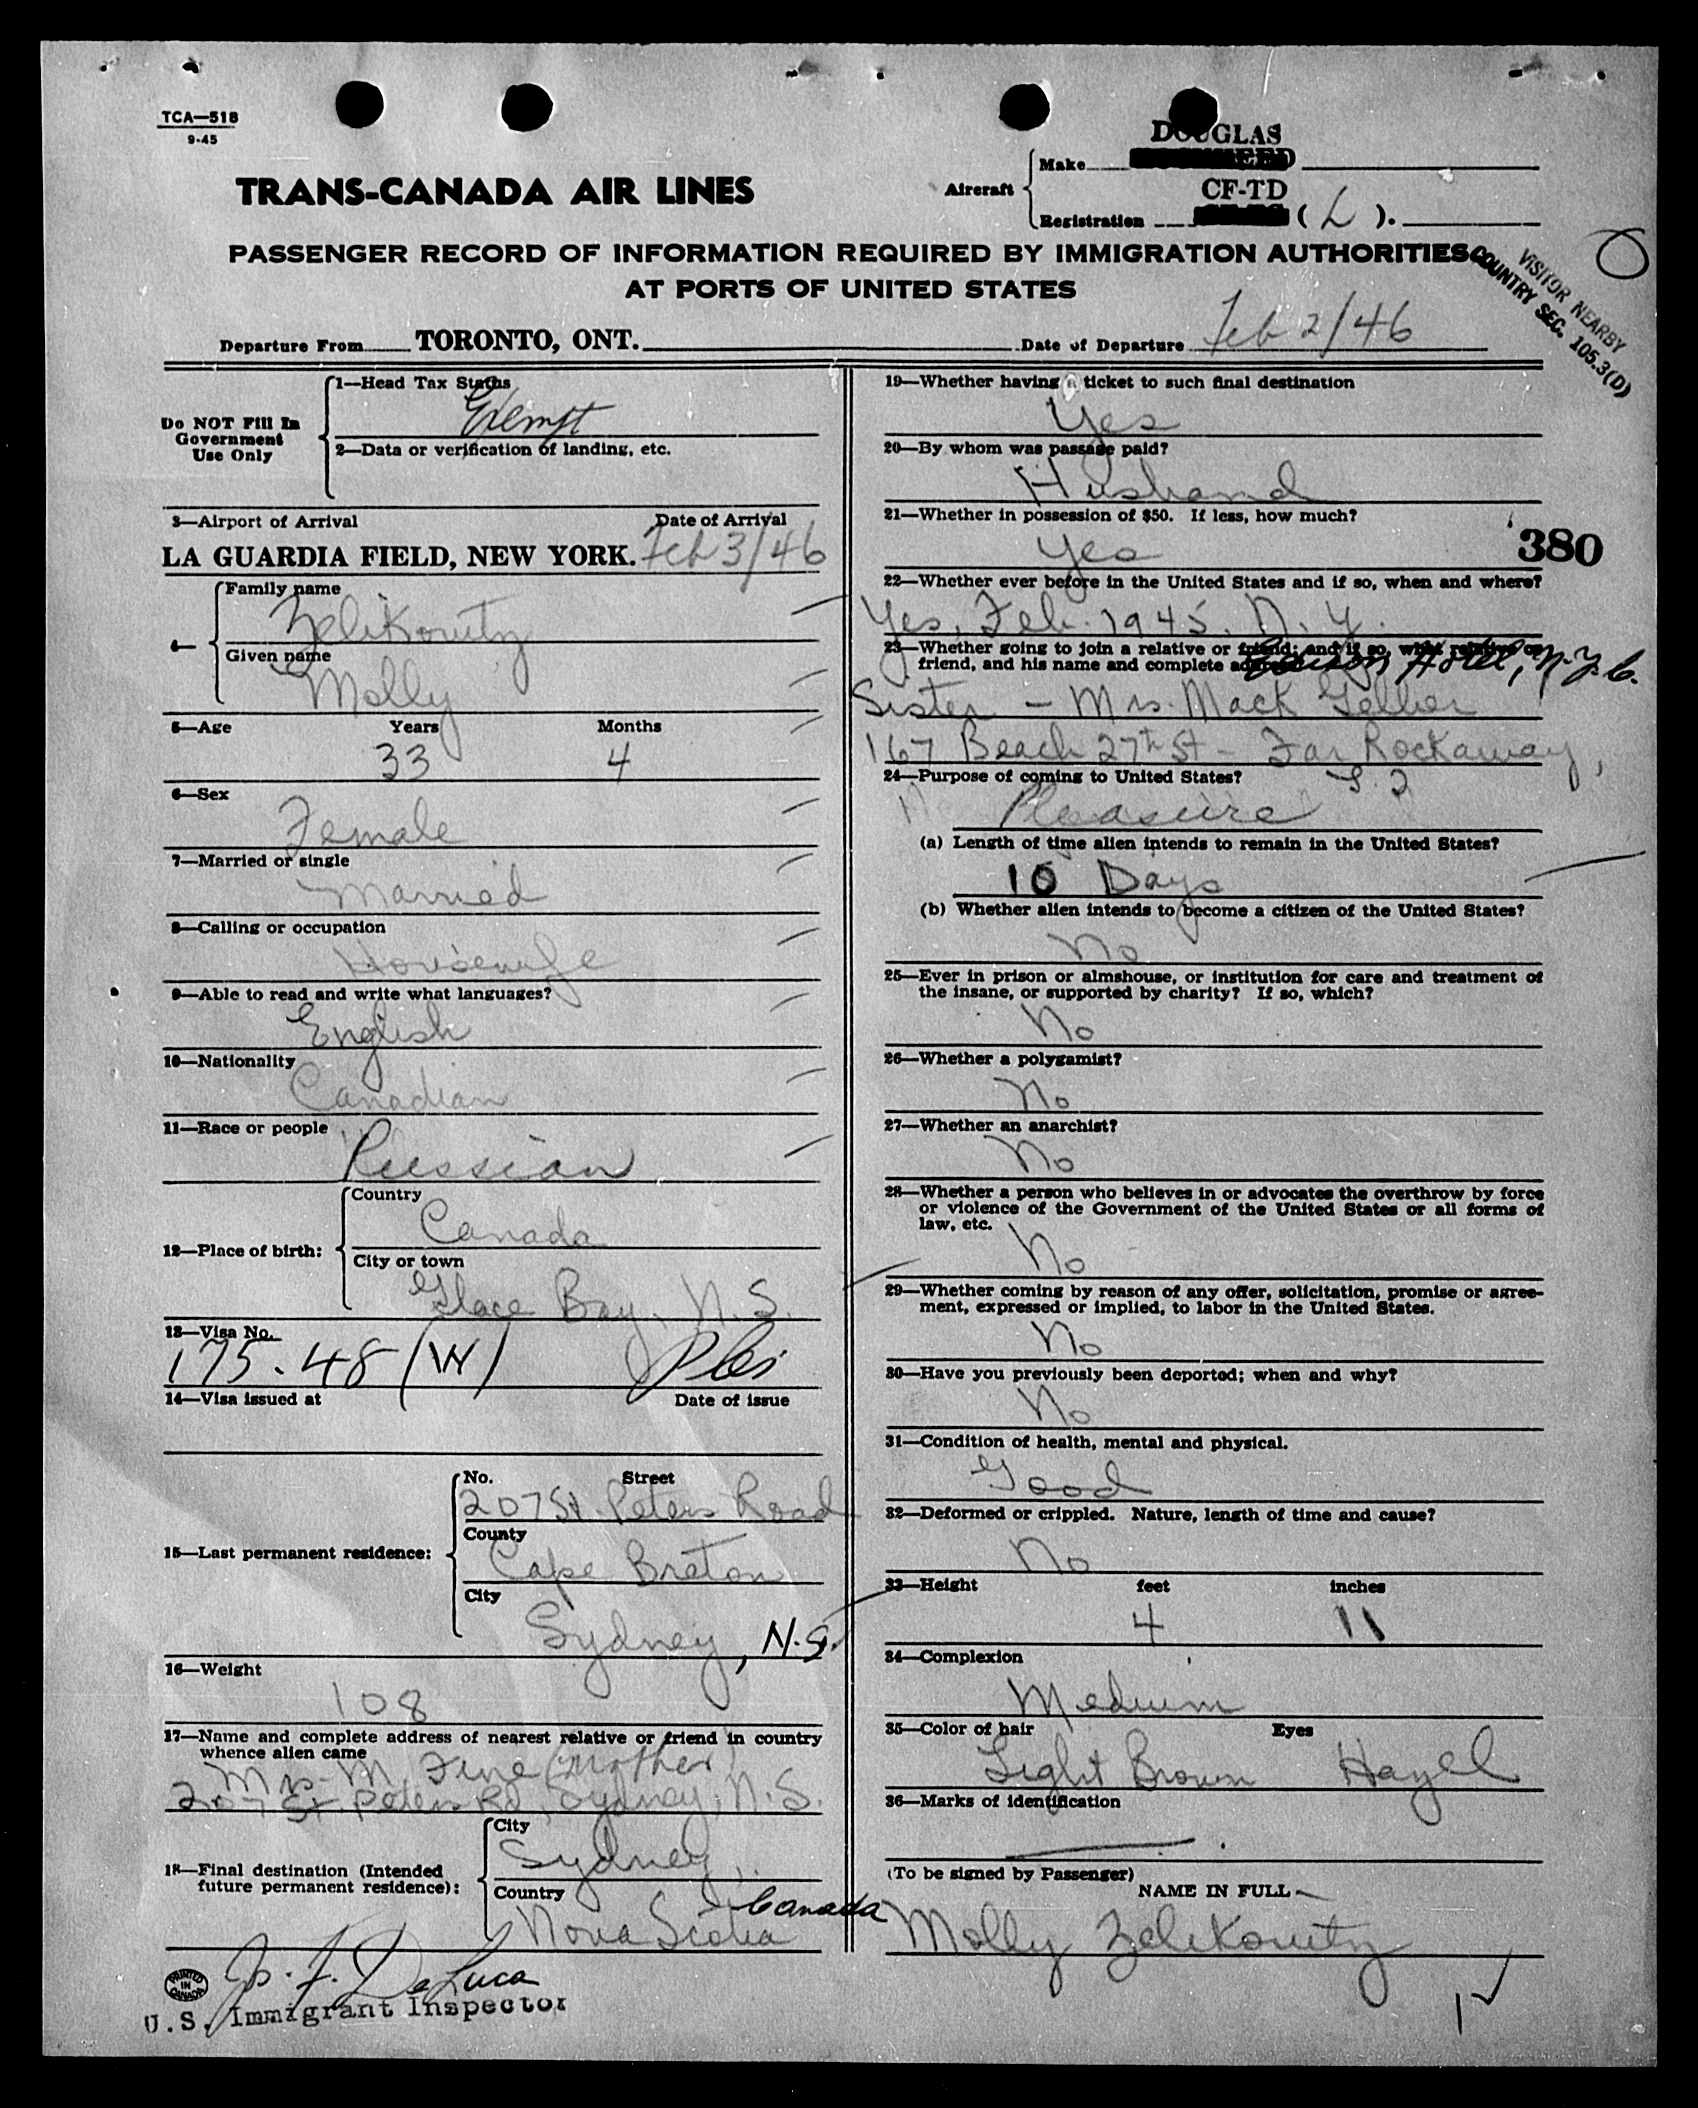 TCA—518
9-45
TRANS-CANADA AIR LINES
Aircraft
Make
DOUGLAS
Registration
CF-TD
( L ).
PASSENGER RECORD OF INFORMATION REQUIRED BY IMMIGRATION AUTHORITIES
AT PORTS OF UNITED STATES
VISITOR NEARBY
COUNTRY SEC. 105.3(D)
Departure From TORONTO, ONT.
Date of Departure Feb 2/46
Do NOT Fill In
Government
Use Only
1—Head Tax Status
Exempt
2—Data or verification of landing, etc.
3—Airport of Arrival Date of Arrival
LA GUARDIA FIELD, NEW YORK. Feb 3/46
4—
Family name
Zelikovitz
Given name
Molly
5—Age Years Months
33 4
6—Sex
Female
7—Married or single
Married
8—Calling or occupation
Housewife
9—Able to read and write what languages?
English
10—Nationality
Canadian
11—Race or people
Russian
12—Place of birth:
Country
Canada
City or town
Glace Bay, N.S.
13—Visa No.
175.48 (W)
14—Visa issued at Date of issue
15—Last permanent residence:
No. Street
207 St. Peters Road
County
Cape Breton
City
Sydney, N.S.
16—Weight
108
17—Name and complete address of nearest relative or friend in country
whence alien came
Mrs. M. Fine (mother)
207 St. Peters Rd, Sydney, N.S.
18—Final destination (Intended
future permanent residence):
City
Sydney,
Country
Canada
Nova Scotia
J. F. DeLuca
PRINTED
IN
CANADA
U.S. Immigrant Inspector
19—Whether having a ticket to such final destination
Yes
20—By whom was passage paid?
Husband
21—Whether in possession of $50. If less, how much?
Yes
380
22—Whether ever before in the United States and if so, when and where?
Yes, Feb. 1945. N.Y.
23—Whether going to join a relative or friend; and if so, what relative or
friend, and his name and complete address
Edison Hotel, N.Y.C.
Sister - Mrs. Mack Gelber
167 Beach 27th St - Far Rockaway,
L.I
24—Purpose of coming to United States?
Pleasure
(a) Length of time alien intends to remain in the United States?
10 Days
(b) Whether alien intends to become a citizen of the United States?
No
25—Ever in prison or almshouse, or institution for care and treatment of
the insane, or supported by charity? If so, which?
No
26—Whether a polygamist?
No
27—Whether an anarchist?
No
28—Whether a person who believes in or advocates the overthrow by force
or violence of the Government of the United States or all forms of
law, etc.
No
29—Whether coming by reason of any offer, solicitation, promise or agree-
ment, expressed or implied, to labor in the United States.
No
30—Have you previously been deported; when and why?
No
31—Condition of health, mental and physical.
Good
32—Deformed or crippled. Nature, length of time and cause?
No
33—Height feet inches
4 11
34—Complexion
Medium
35—Color of hair Eyes
Light Brown Hazel
36—Marks of identification
(To be signed by Passenger)
NAME IN FULL
Molly Zelikovitz